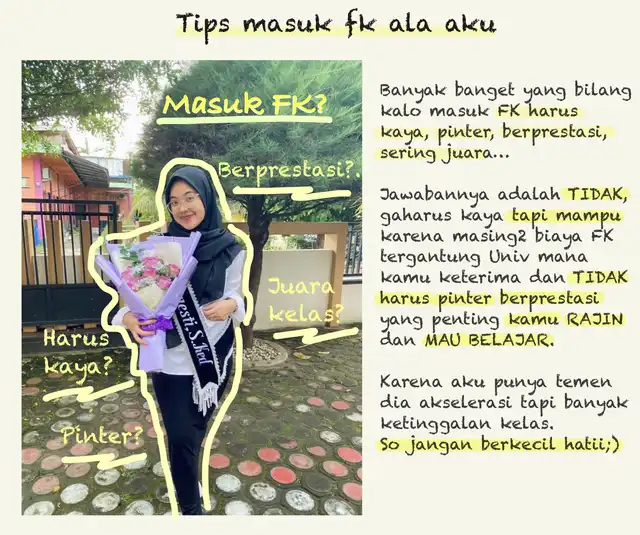 Tips masuk fk ala aku
Masuk FK?
Berprestasi?.
Juara
kelas?
Harus
kaya?
Pinter?
esti, S.Ked
Banyak banget yang bilang
kalo masuk FK harus
kaya, pinter, berprestasi,
sering juara...
Jawabannya adalah TIDAK,
gaharus kaya tapi mampu
karena masing2 biaya FK
tergantung Univ mana
kamu keterima dan TIDAK
harus pinter berprestasi
yang penting kamu RAJIN
dan MAU BELAJAR.
Karena aku punya temen
dia akselerasi tapi banyak
ketinggalan kelas.
So jangan berkecil hatii;)